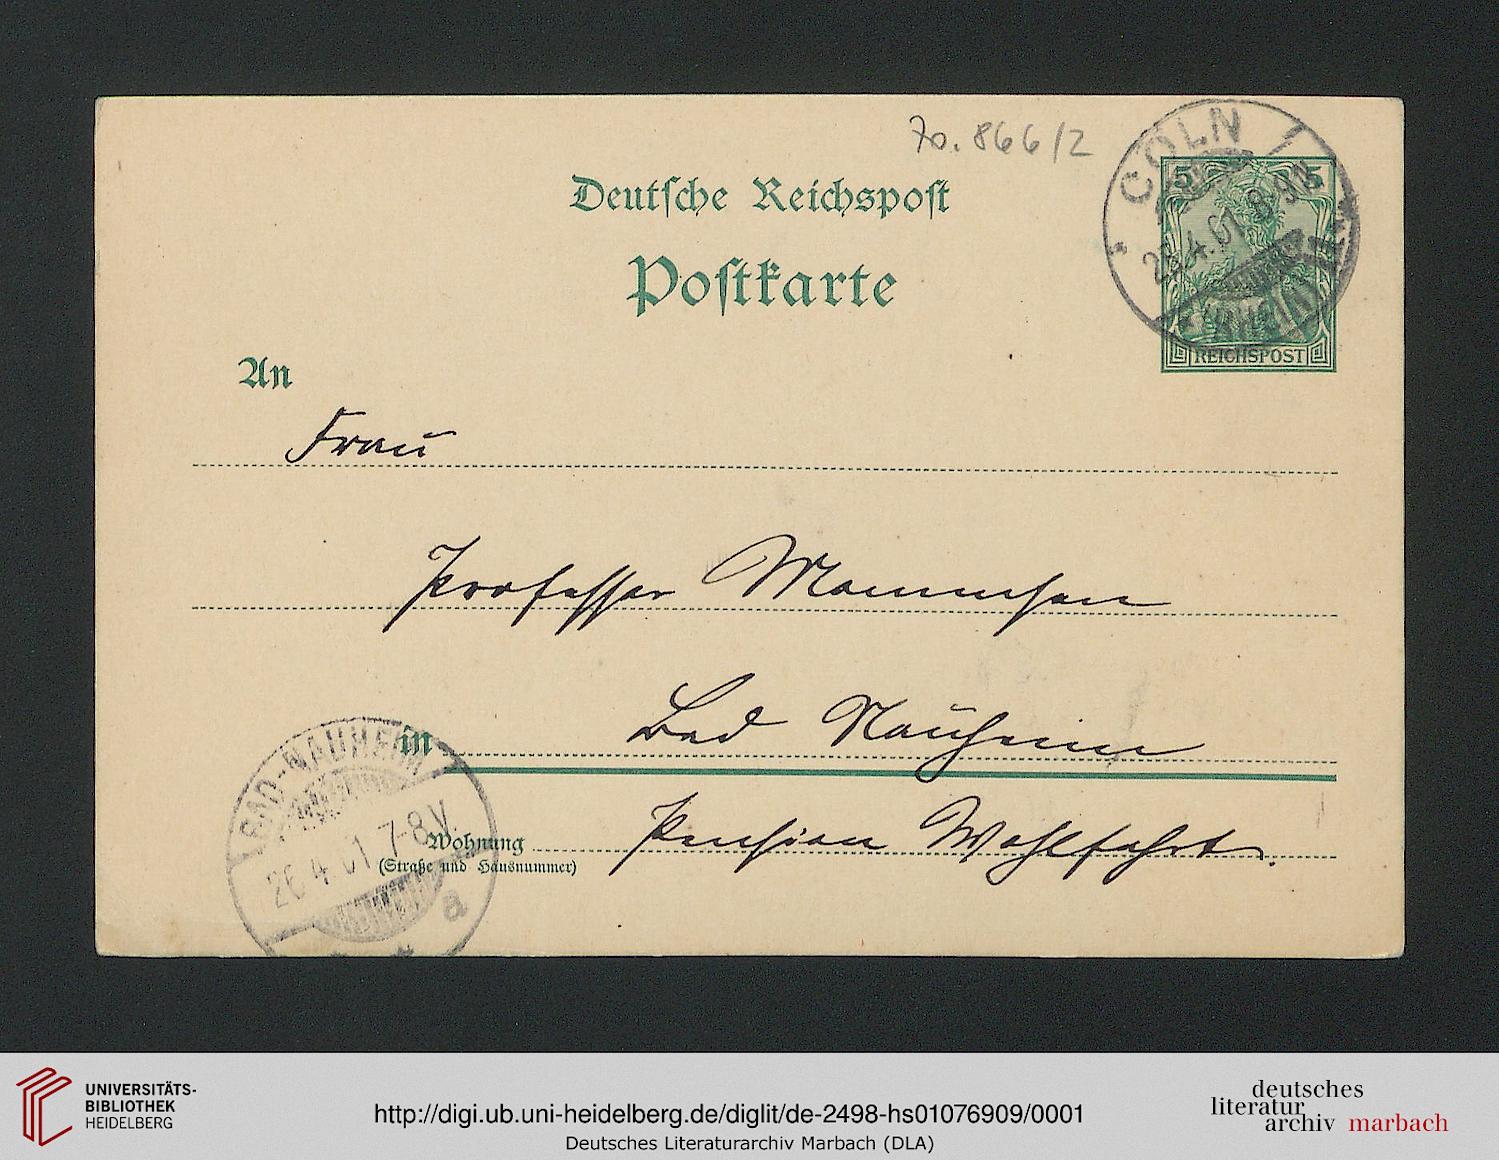 70. 866/2
CÖLN
5 5
25.4.01. 8-9N
(RHEIN)
REICHSPOST
Deutsche Reichspost
Postkarte
An
Frau
Professor Mommsen
in Bad Nauheim
Wohnung Pension Wohlfahrt.
(Straße und Hausnummer)
BAD-NAUHEIM
26 4 01 7-8V
a
UNIVERSITÄTS-
BIBLIOTHEK
HEIDELBERG
http://digi.ub.uni-heidelberg.de/diglit/de-2498-hs01076909/0001
Deutsches Literaturarchiv Marbach (DLA)
deutsches
literatur
archiv marbach